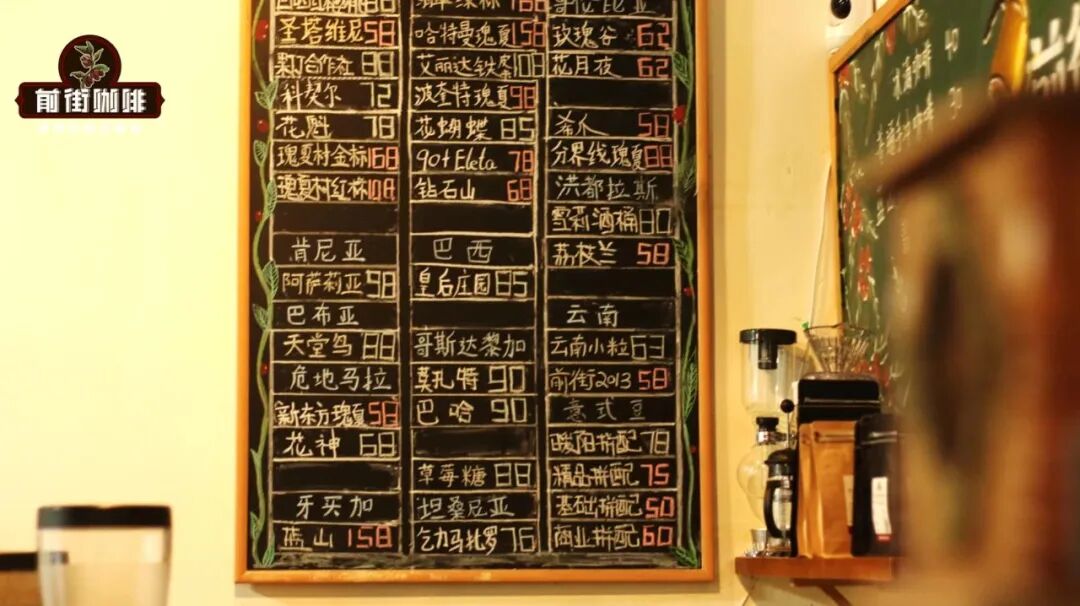 前街咖啡
圣塔维尼 58
果丁合作社 88
科契尔 72
花魁 78
瑰夏村金标 168
瑰夏村红标 108
肯尼亚
阿萨莉亚 98
巴布亚
天堂鸟 88
危地马拉
新东方瑰夏 58
花神 68
牙买加
蓝山 158
哈特曼瑰夏 158
艾丽达铁皮桶 108
波奎特瑰夏 98
花蝴蝶 85
90+Eleta 78
钻石山 68
巴西
皇后庄园 85
哥斯达黎加
莫扎特 90
巴哈 90
草莓糖 88
坦桑尼亚
乞力马扎罗 76
哥伦比亚
玫瑰谷 62
花月夜 62
希爪 58
分界线瑰夏 88
洪都拉斯
雪莉酒桶 80
荔枝兰 58
云南
云南小粒 63
前街2013 58
意式豆
暖阳拼配 78
精品拼配 75
基础拼配 50
商业拼配 60